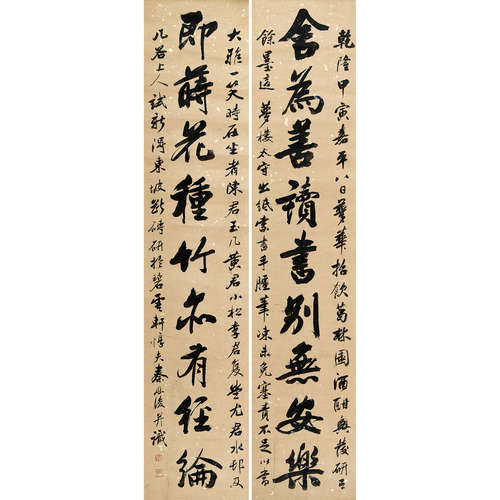 乾隆甲寅嘉平八日夢華招飲葛林園酒酣興發研有
舍為善讀書別無安樂
餘墨適夢樓太守出紙索書手腫筆凍未免塞責不足以當
大雅一笑時在坐者陳君玉几黃君小松李君復堂尤君水邨及
即蒔花種竹亦有經綸
几谷上人試新得東坡斷研於碧雲軒惇夫秦恩復并識